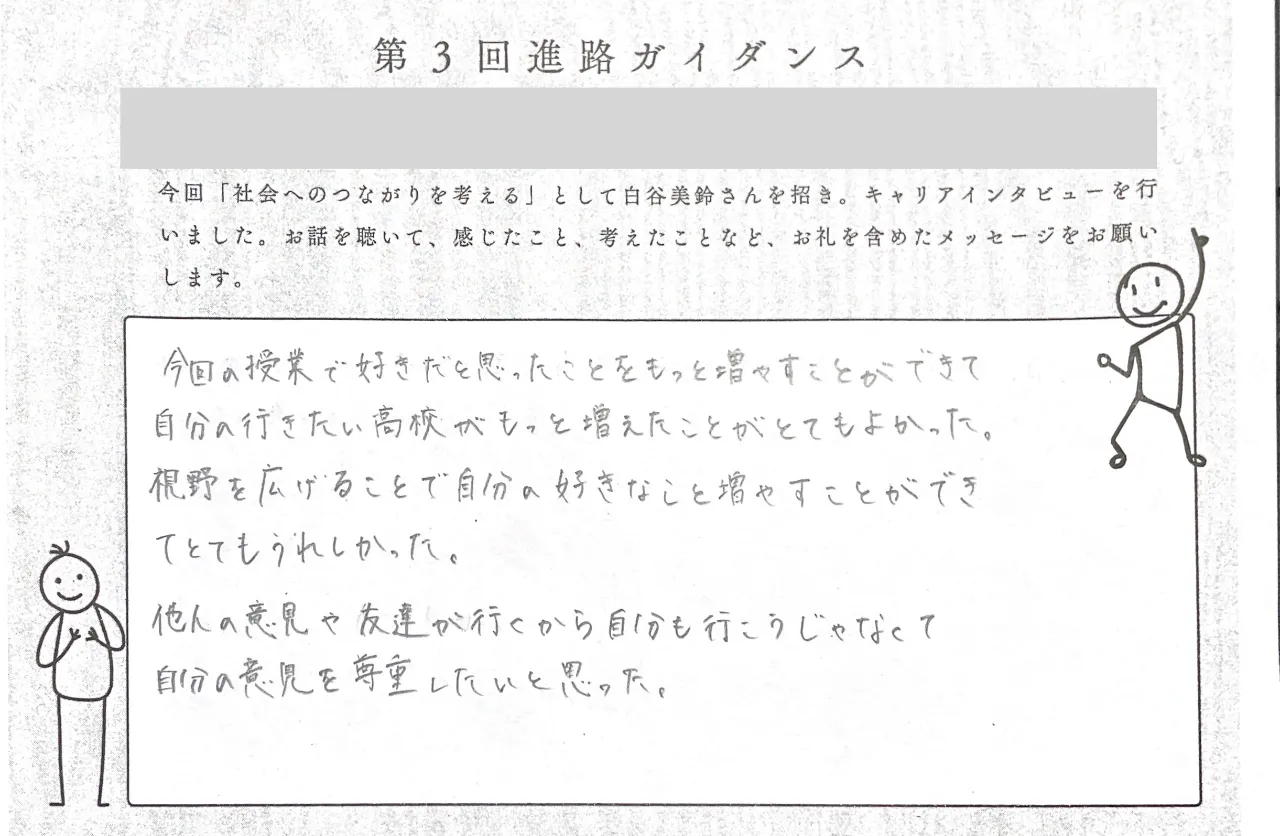 第3回進路ガイダンス
今回「社会へのつながりを考える」として白谷美鈴さんを招き。キャリアインタビューを行
いました。お話を聴いて、感じたこと、考えたことなど、お礼を含めたメッセージをお願い
します。
今回の授業で好きだと思ったことをもっと増やすことができて
自分の行きたい高校がもっと増えたことがとてもよかった。
視野を広げることで自分の好きなこと増やすことができ
てとてもうれしかった。
他人の意見や友達が行くから自分も行こうじゃなくて
自分の意見を尊重したいと思った。